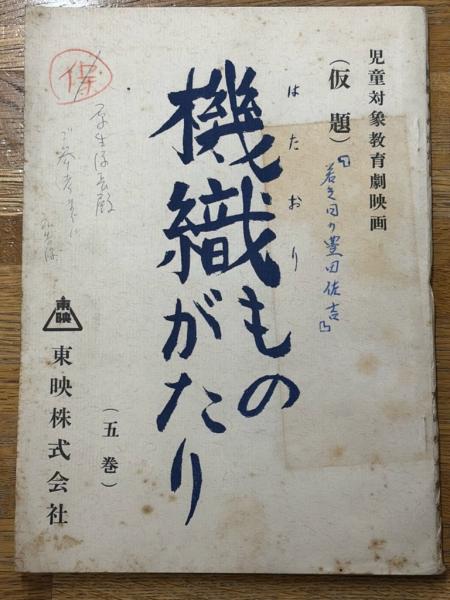 児童対象教育劇映画
(仮題)
『若き日の豊田佐吉』
はたおり
機織もの
がたり
(五巻)
厚生係長殿
東映
東映株式会社